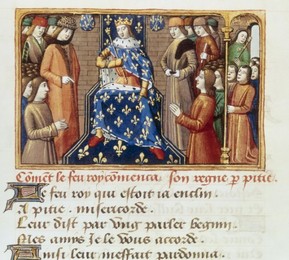 Com̃et le feu roy com̃enca son regne p̱ pitie.
Le feu roy qui estoit ia enclin.
A pitie. misericorde.
Leur dist par vng parler begnin.
Mes amys Je le vous accorde.
Ainsi leur meffait pardonna.